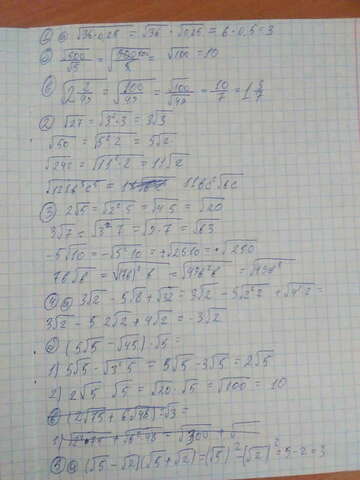 ① а) √36·0,25 = √36 · √0,25 = 6·0,5=3
б) √500/√5 = √500/5 = √100 = 10
в) √2 2/49 = √100/49 = √100/√49 = 10/7 = 1 3/7
② √27 = √3²·3 = 3√3
√50 = √5²·2 = 5√2
√242 = √11²·2 = 11√2
11bc²√bc
③ 2√5 = √2²·5 = √4·5 = √20
3√7 = √3²·7 = √9·7 = √63
-5√10 = -√5²·10 = -√25·10 = -√250
7b√b = √(7b)²·b = √49b²·b = √49b³
④ а) 3√2 - 5√8 + √32 = 3√2 - 5√2²·2 + √4²·2 =
3√2 - 5·2√2 + 4√2 = -3√2
б) (5√5 - √45)·√5 =
1) 5√5 - √3²·5 = 5√5 - 3√5 = 2√5
2) 2√5 · √5 = √20 · √5 = √100 = 10
в) (2√75 + 6√48) : √3 =
⑤ а) (√5 - √2)(√5 + √2) = (√5)² - (√2)² = 5-2=3